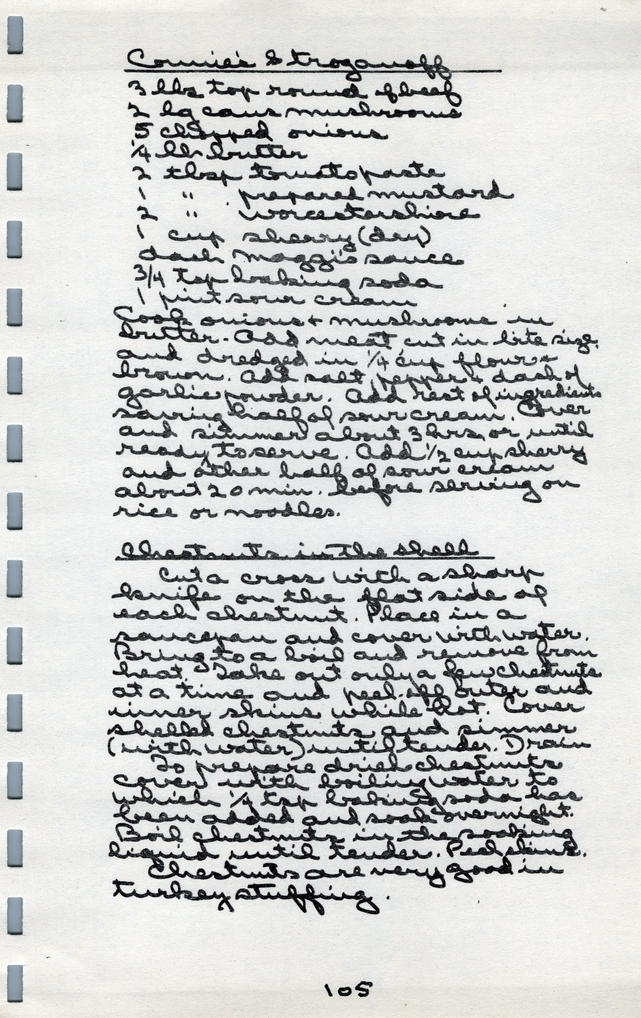 Connie's Stroganoff
3 lbs top round of beef
2 lg cans mushrooms
5 chopped onions
1/4 lb butter
2 tbsp tomato paste
1 " prepared mustard
2 " worcestershire
1 cup sherry (dry)
dash Maggi's sauce
3/4 tsp baking soda
1 pint sour cream
Cook onions + mushrooms in
butter. Add meat cut in bite size,
and dredged in 1/4 cup flour +
brown. Add salt, pepper + dash of
garlic powder. Add rest of ingredients
saving half of sour cream. Cover
and simmer about 3 hrs, or until
ready to serve. Add 1/2 cup sherry
and other half of sour cream
about 20 min. before serving on
rice or noodles.
Chestnuts in the shell
Cut a cross with a sharp
knife on the flat side of
each chestnut. Place in a
saucepan and cover with water.
Bring to a boil and remove from
heat. Take out only a few chestnuts
at a time and peel off outer and
inner skins while hot. Cover
shelled chestnuts and simmer
(with water) until tender. Drain
To prepare dried chestnuts
cover with boiling water to
which 1/4 tsp baking soda has
been added and soak overnight.
Boil chestnuts in the soaking
liquid until tender. Peel skins.
Chestnuts are very good in
turkey stuffing.
105